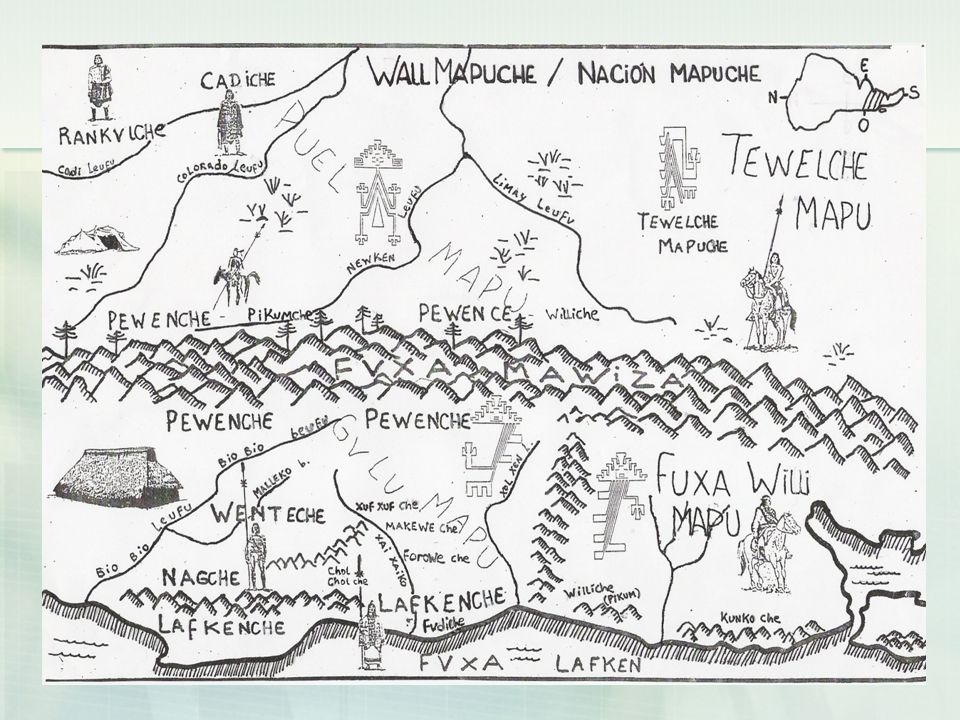 WALLMAPUCHE / NACIÓN MAPUCHE
E
N
S
O
RANKVLCHE
CADICHE
Cadi Leufu
COLORADO Leufu
PUEL
MAPU
NEWKEN LEUFU
LIMAY LEUFU
TEWELCHE
MAPUCHE
TEWELCHE
MAPU
PEWENCHE
PiKUMche
PEWENCE
Williche
FVXA MAWiZA
PEWENCHE
PEWENCHE
BIO BIO LEUFU
BIO BIO LEUFU
MALLEKO b.
GVLU MAPU
WENTECHE
XUF XUF che
MAKEWE che
FOROWE che
XAI XAIKO
XOL XEN L.
NAGCHE
Chol
Chol che
LAFKENCHE
LAFKENCHE
Fudiche
FUXA Willi
MAPU
Williche
(PIKUM)
KUNKO che
FVXA LAFKEN